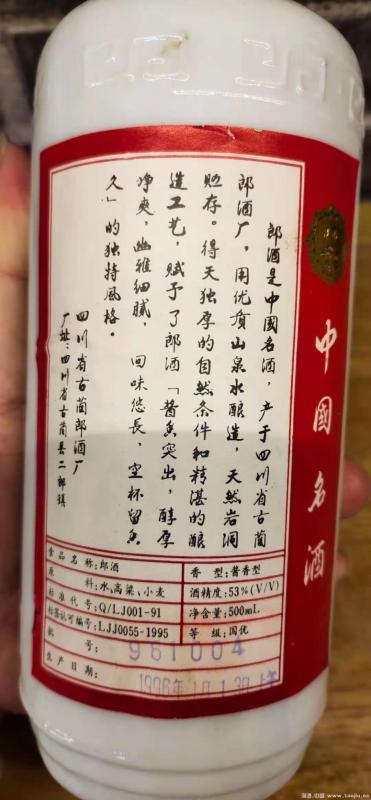 中國名酒
郎酒是中國名酒,产于四川省古蔺
郎酒厂,用优质山泉水酿造,天然岩洞
贮存。得天独厚的自然条件和精湛的酿
造工艺,赋予了郎酒「酱香突出,醇厚
净爽,幽雅细腻,回味悠長,空杯留香
久」的独特风格。
四川省古蔺郎酒厂
厂址:四川省古蔺县二郎镇
食品名称:郎酒
香型:酱香型
原料:水、高粱、小麦
酒精度:53%(V/V)
标准代号:Q/LJ001-91
净含量:500mL
标签认可编号:LJJ0055-1995
等级:国优
批号:961004
生产日期:1996年